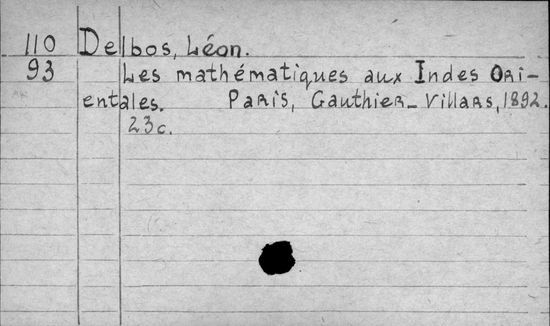 110 Delbos, Léon.
93 Les mathématiques aux Indes Ori-
entales. Paris, Gauthier-Villars, 1892.
23c.